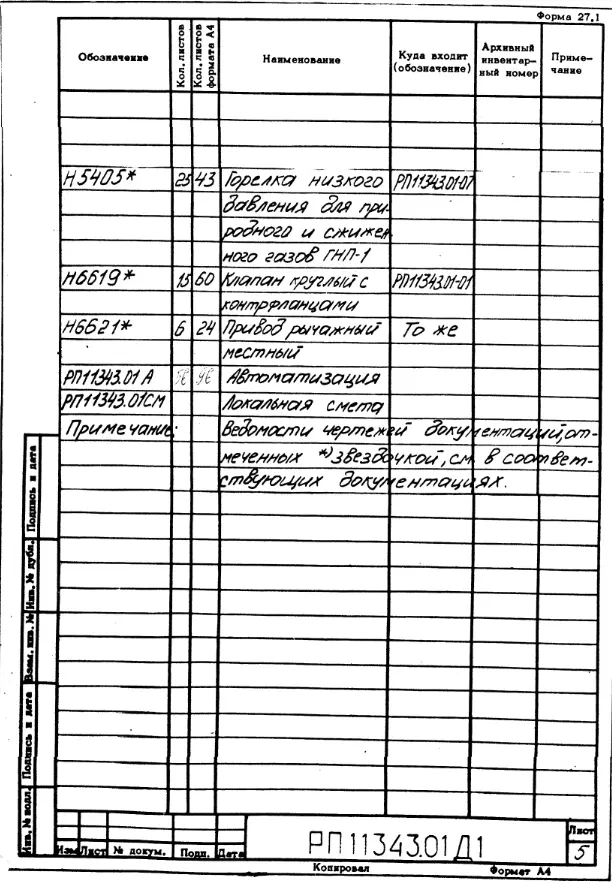 Форма 27.1
Обозначение Кол. листов Кол. листов формата А4 Наименование Куда входит (обозначение) Архивный инвентар-ный номер Приме-чание
Н5405* 25 43 Горелка низкого РП11343.01-07
давления для при-
родного и сжижен-
ного газов ГНП-1
Н6619* 15 60 Клапан круглый с РП11343.01-01
контрфланцами
Н6621* 6 24 Привод рычажный То же
местный
РП11343.01 А Автоматизация
РП11343.01СМ Локальная смета
Примечание: Ведомости чертежей документаций, от-
меченных *) звездочкой, см. в соответ-
ствующих документациях.
Подпись и дата
Инв. № дубл.
Взам. инв. №
Подпись и дата
Инв. № подл.
Изм Лист № докум. Подп. Дата
РП11343.01Д1
Лист
5
Копировал Формат А4